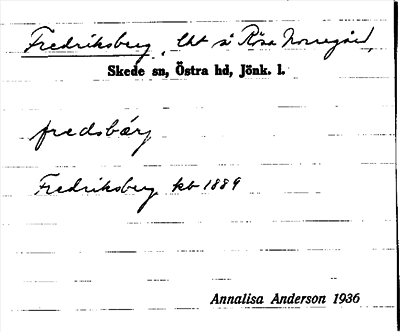 Fredriksberg, lht å Rösa Norregård,
Skede sn, Östra hd, Jönk. l.
fredsbärj
Fredriksberg kb 1889
Annalisa Anderson 1936